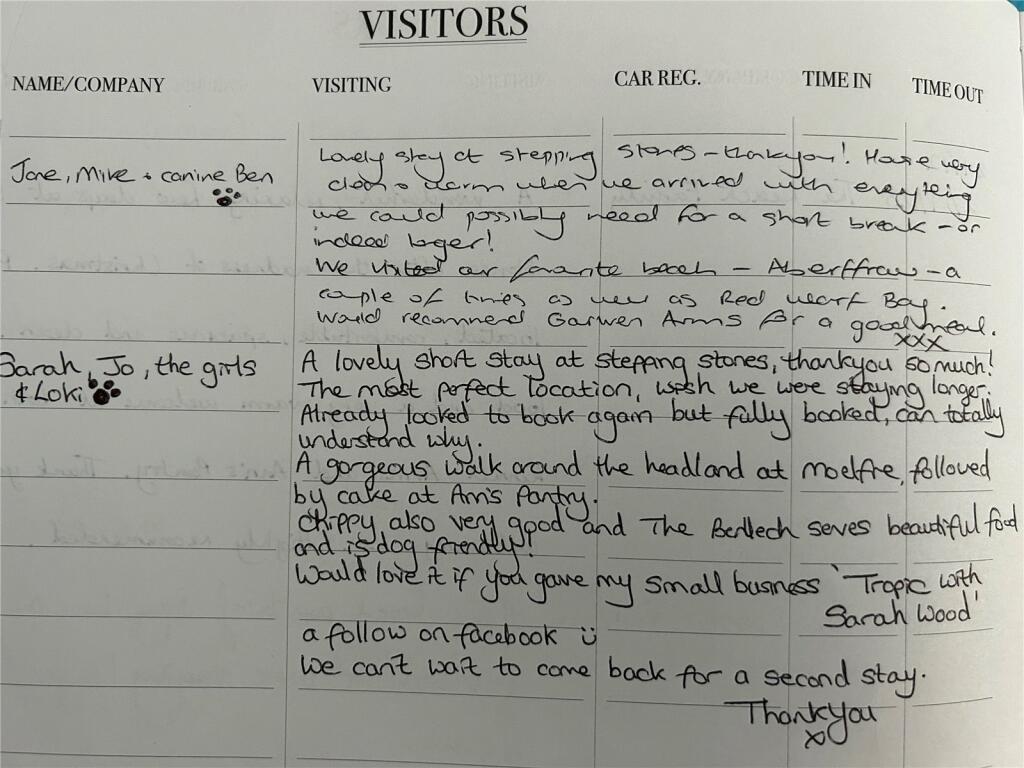 VISITORS
NAME/COMPANY VISITING CAR REG. TIME IN TIME OUT
Jane, Mike + canine Ben
Lovely stay at stepping stones - thankyou! House very
clean & warm when we arrived with everything
we could possibly need for a short break - or
indeed longer!
We visited our favourite beach - Aberffraw - a
couple of times as well as Red Warf Bay.
Would recommend Garwen Arms for a good meal.
xxx
Sarah, Jo, the girls
& Loki
A lovely short stay at stepping stones, thankyou so much!
The most perfect location, wish we were staying longer.
Already looked to book again but fully booked, can totally
understand why.
A gorgeous walk around the headland at moelfre, followed
by cake at Ann's Pantry.
Chippy also very good and The Benllech serves beautiful food
and is dog friendly!
Would love it if you gave my small business 'Tropic with
Sarah Wood'
a follow on facebook ü
We can't wait to come back for a second stay.
Thankyou
x